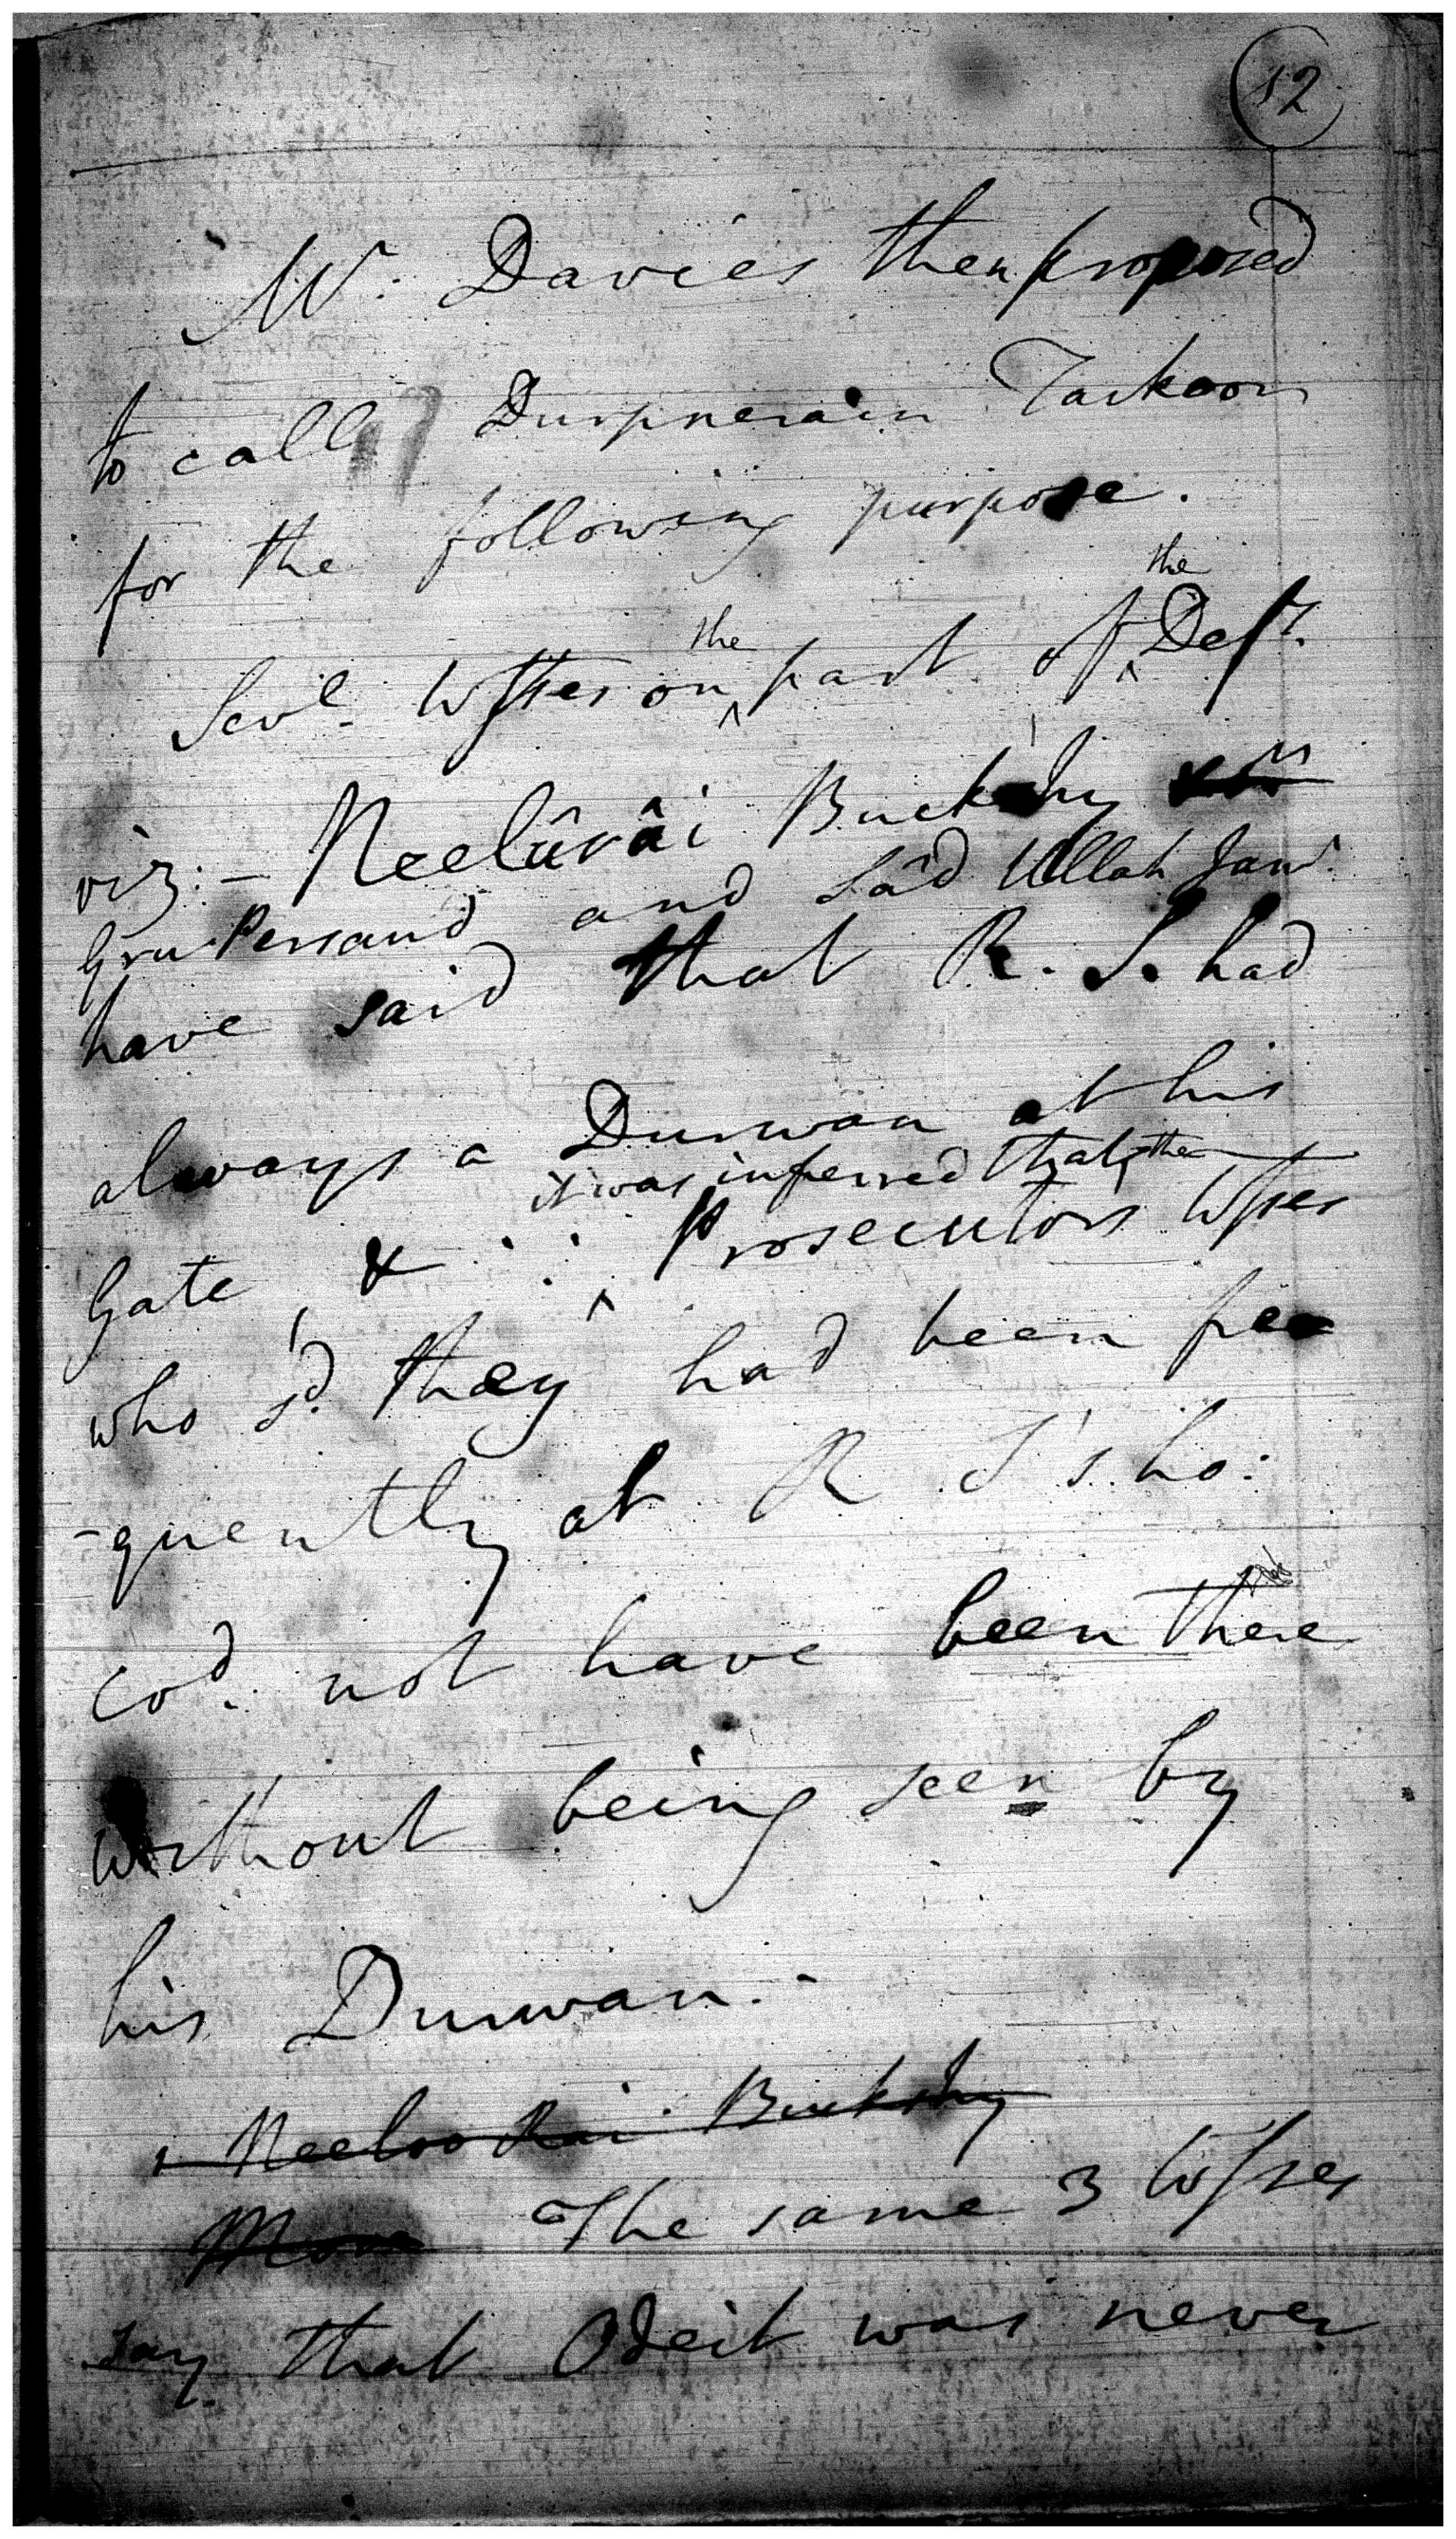 12
Mr. Davies then proposed
to call Durpnerain Tarkoor
for the following purpose.
the the
Sevl. Wsses on part of Deft.
viz: - Neelûrâi Buckshy
Gru Persaud and Sâd Ullah
have said that R. S. had
always a Durwan at his
it was inferred that the
Gate, & ∴ Prosecutors Wsses
who sd. they had been fre
-quently at R S's ho:
cod. not have been there
without being seen by
his Durwan.-
Neeloo Rai Buckshy
The same 3 Wsses
say that Odeit was never